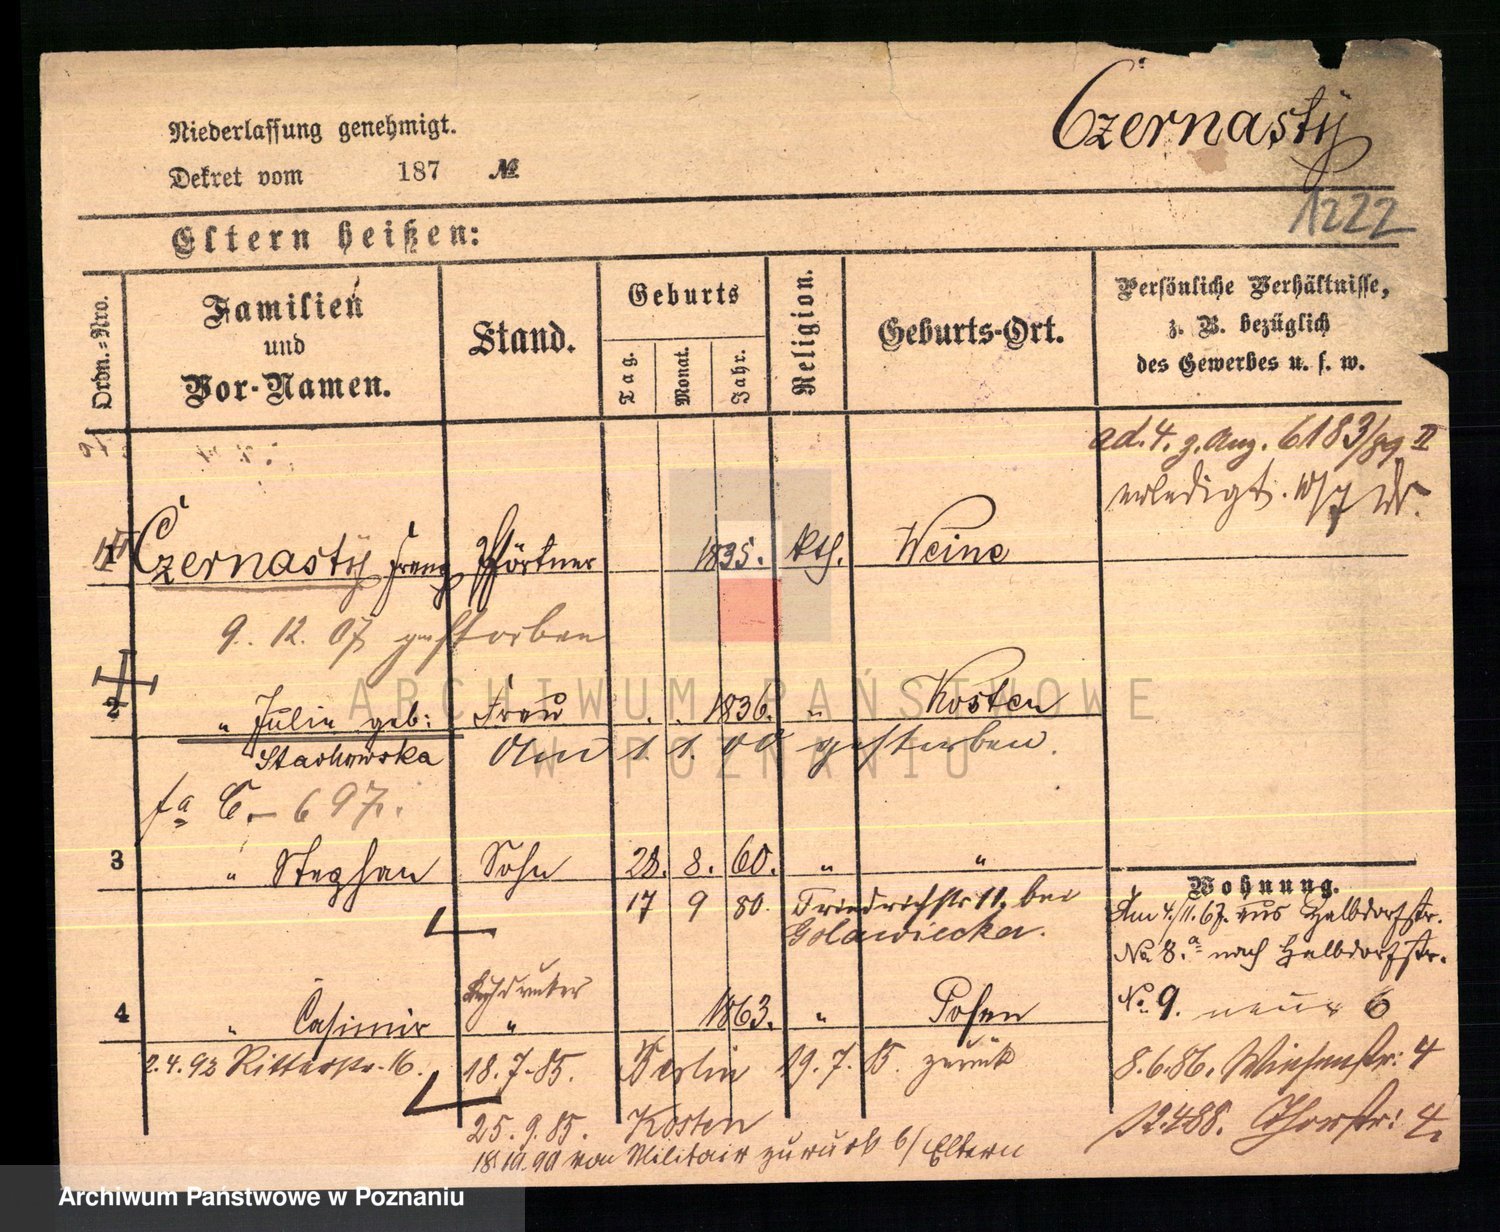 Czernastÿ
Niederlassung genehmigt.
Dekret vom 187 №
1222
Eltern heißen:
Ordn.-Nro.
Familien und Vor-Namen.
Stand.
Geburts
Tag.
Monat.
Jahr.
Religion.
Geburts-Ort.
Persönliche Verhältnisse,
z. B. bezüglich
des Gewerbes u. s. w.
ad. 4. g. Aug. 6183/89 II
erledigt. 10/7
1 Czernastÿ Franz Pförtner 1835. kth. Weine
9. 12. 07 gestorben
2 " Julie geb: Frau . . 1836. " Kosten
Stachowska Am 1. 1. 00 gestorben.
C. 697.
3 " Stephan Sohn 28. 8. 60. " "
17 9 80. Friedrichstr 11. bei
Golawiecka.
Wohnung.
Am 4./11. 67. aus Halbdorfstr.
No 8.a nach Halbdorfstr.
No. 9. neue 6
4 " Casimir " 1863. " Posen
2.4.92 Ritterstr. 16. 18.7.85. Berlin 19.7.85 zurück
8.6.86. Wiesenstr: 4
25.9.85. Kosten
12.4.88. Thorstr: 4.
18.10.90 von Militair zurück b/ Eltern
ARCHIWUM PAŃSTWOWE
W POZNANIU
Archiwum Państwowe w Poznaniu